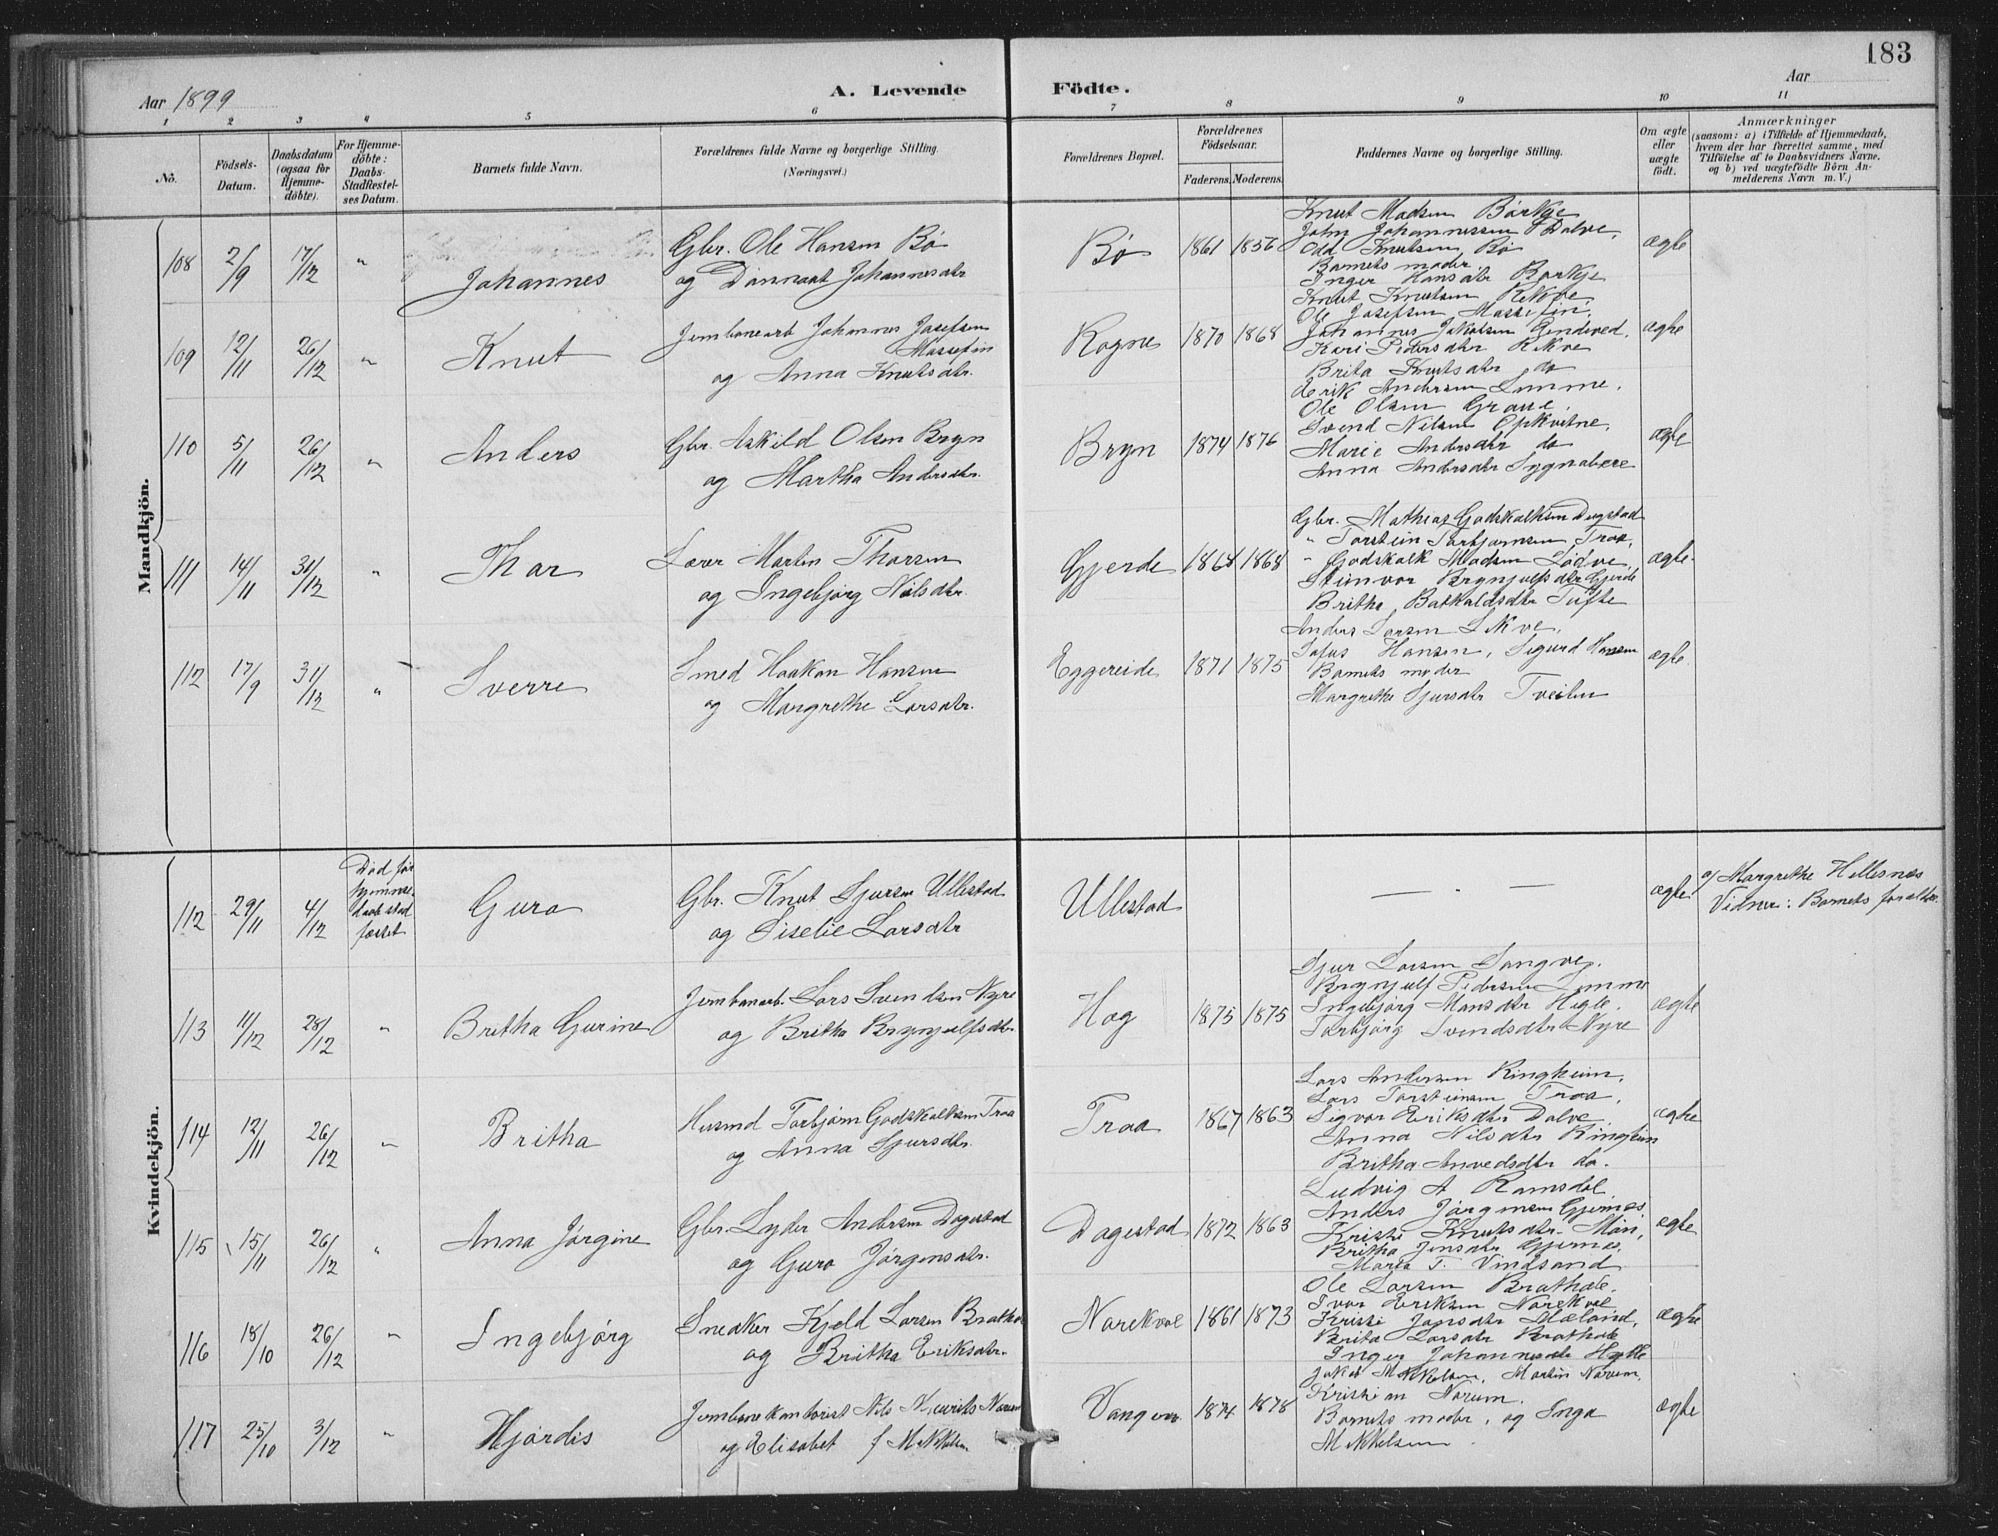 183
Aar 1899
A. Levende Födte.
Aar
1 2 3 4 5 6 7 8 9 10 11
No.
Födsels-Datum.
Daabsdatum (ogsaa for Hjemmedöbte).
For Hjemmedöbte: Daabs-Stadfæstelses Datum.
Barnets fulde Navn.
Forældrenes fulde Navne og borgerlige Stilling.
(Næringsvei.)
Forældrenes Bopæl.
Forældrenes Födselsaar.
Faderens. Moderens.
Faddernes Navne og borgerlige Stilling.
Om ægte eller uægte födt.
Anmærkninger
(saasom: a) i Tilfælde af Hjemmedaab, hvem der har forrettet samme, med Tilföielse af to Daabsvidners Navne, og b) ved uægtefödte Börn Anmelderens Navn m. V.)
Mandkjön.
108 2/9 17/12 " Johannes
Gbr. Ole Hansen Bø
og Johannesdtr
Bø 1861 1856
Knut Madsen Børkje
John Johannessen Dalve,
Odd Knutsen Bø
Barnets moder
Inger Hansdtr Børkje
ægte
109 12/11 26/12 " Knut
Jernbanearb Johannes Josefsen
og Anna Knutsdtr.
Rogne 1870 1868
Knut Knutsen Rekve
Ole Josefsen
Johannes Jakobsen
Kari Pedersdtr Rekve
Brita Knutsdtr do
ægte
110 5/11 26/12 " Anders
Gbr. Askild Olsen Bryn
og Martha Andersdtr.
Bryn 1874 1876
Erik Andersen Limme.
Ole Olsen Graue.
Svend Nilsen Opkvitne.
Marie Andersdtr do
Anna Andersdtr
ægte
111 14/11 31/12 " Thor
Lærer Martin Thorsen
og Ingebjørg Nilsdtr.
Gjerde 1868 1868
Gbr. Mathias Godskalksen Dugstad
" Torstein Torbjørnsen Traa,
" Godskalk Madsen Lødve
Steinvor Brynjulfsdtr Gjerde
Britha Tufte
ægte.
112 17/9 31/12 " Sverre
Smed Haakon Hansen
og Margrethe Larsdtr.
Eggereide 1871 1875
Anders Larsen Lekve.
Hansen, Sigurd Hansen
Barnets moder
Margrethe Sjursdtr Tveiten
ægte.
Kvindekjön.
112 29/11 4/12 Død før hjemmedaab stadfæstet Guro
Gbr. Knut Sjursen Ullestad
og Siselie Larsdtr
Ullestad
— . —
ægte
a/ Margrethe Hellesnes
Vidner: Barnets forældre.
113 11/12 28/12 " Britha Gurine
Jernbanarb. Lars Svendsen Nyre
og Britha Brynjulfsdtr
Hæg 1875 1875
Sjur Larsen Sangve.
Brynjulf Pedersen Limme
Ingebjørg Monsdtr Hegle.
Torbjørg Svendsdtr Nyre
ægte
114 12/11 26/12 " Britha
Husmd Torbjørn Godskalksen Traa
og Anna Sjursdtr.
Traa 1867 1863
Lars Andersen Ringheim,
Lars Torsteinsen Traa,
Sigvor Eriksdtr Dalve
Anna Nilsdtr Ringheim
Britha Anvedsdtr do.
ægte
115 15/11 26/12 " Anna Jørgine
Gbr. Lyder Andersen Dagestad
og Guro Jørgensdtr.
Dagestad 1872 1863
Ludvig A Ramsdal
Anders Jørgensen Gjernes,
Kristi Knutsdtr Møn,
Britha Jensdtr Gjernes,
Marta T. Vindsand
ægte
116 18/10 26/12 " Ingebjørg
Snedker Kjeld Larsen Brathole
og Britha Eriksdtr.
Norekval 1861 1873
Ole Larsen Brathole.
Ivar Eriksen Norekval
Kristi Jonsdtr Mæland,
Brita Larsdtr Brathole
Inger Johannesdtr Hylle
ægte
117 25/10 3/12 " Hjørdis
Jernbanekontorist Nils Nevrits Norum
og Elisabet f Mikkelsen
Vangen 1874 1878
Jakob Mikkelsen, Martin Norum,
Kristian Norum.
Barnets moder, og Inga
Mikkelsen
ægte